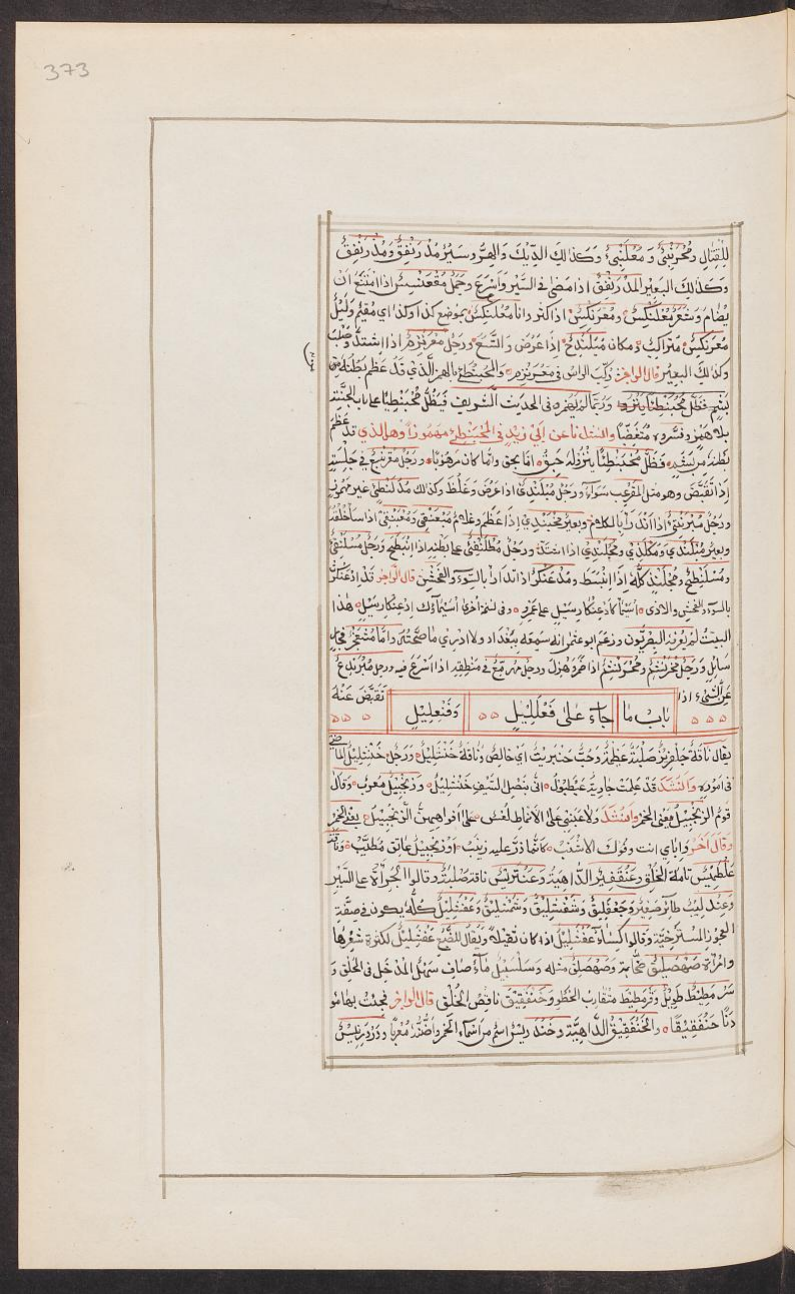 373
للقتال ومحرنبئ ومعلنبئ وكذلك الديك والهر وسير مدرنفق ومذرنفق
وكذلك البعير المدرنفق اذا مضى فى السير واسرع وجمل مقعنسس اذا امتنع ان
يضام وشعر معلنكس ومعرنكس اذا كثر وانا معلنكس بموضع كذا وكذا اى مقيم وليل
معرنكس متراكب ومكان مبلندح اذا عرض واتسع ورجل معرنزم اذا اشتد وصلب
وكذلك البعير قال الراجز ركب الراس فى معرنزم والمحبنطئ بالهمز الذي قد عظم بطنه من
بشم فظل محبنطئا ينزو وربما لم يهمزه فى الحديث الشريف فيظل محبنطيا على باب الجنة
بلا همز وفسروه متغضبا وانشدنا عن ابي زيد في المحبنطئ مهموزا وهو الذي قد عظم
بطنه من بشم فظل محبنطئا ينزو له حبق اما بحق واما كان مرهوبا ورجل مقرنبع في جلسته
اذا تقبض وهو مثل المقرعب سواء ورجل مبلندى اذا عرض وغلظ وكذلك مدلنطى غير مهموز
ورجل مبرنتئ اذا اندرأ بالكلام وبعير مخبندي اذا عظم وغلام مبعنقى ومعبنقى اذا ساء خلقه
وبعير مبلندي ومكلندي ومجلندي اذا اشتد ورجل مطلنفئ على بطنه اذا انبطح ورجل مسلنتئ
ومسلنطح ومجلند كله اذا انبسط ومدعنكر اذا اندرأ بالسوء والفحش قال الراجز قد ادعنكرت
بالسوء والفحش والاذى اسيما كادعنكار سيل على عمرو وفى نسخة اخرى اسيماؤك ادعنكار سيل هذا
البيت لم يعرفه البصريون وزعم ابو عثمان انه سمعه ببغداد ولا ادري ما صحته وماء مثعنجر فجار
سائل ورجل مخرنشم ومخرنشم اذا ضمر وهزل ورجل مهرمع فى منطقه اذا اسرع فيه ورجل مقرندع
عن الشئ اذا تقبض عنه
باب ما جاء على فعلليل وفنعليل
يقال ناقة جلفزيز صلبة عظيمة وحب حنبريت اي خالص وناقة خنشليل ورجل خنشليل الماضى
فى اموره وانشد قد علمت جارية عطبول انى بنصل السيف خنشليل وزنجبيل معرب وقال
قوم الزنجبيل يعنى الخمر وانشد ولاعبني على الانماط لعس على افواههن الزنجبيل يعنى الخمر
وقال اخر وابابي انت وفوك الاشنب كانما ذر عليه زرنب او زنجبيل عاتق مطيب وناقة
علطميس تامة الخلق وعنقفير الداهية وعنتريس ناقة صلبة وقالوا الجرأة على السير
وعندليب طائر صغير وجعفليق وشفشليق وشمشليق وعفشليل كله يكون فى صفة
العجوز المسترخية وقالوا كساء عفشليل اذا كان ثقيلا ويقال للضبع عفشليل لكثرة شعرها
وامرأة صهصليق صخابة وصهصلق مثله وسلسبيل ماء صاف سهل المدخل فى الحلق و
سرمطيط طويل وقرمطيط متقارب الخطو وخنفقيق ناقص الخلق قال الراجز فجئت بها مو
دنا خنفقيقا والخنفقيق الداهية وخندريس اسم من اسماء الخمر واظنه معربا ودردبيس